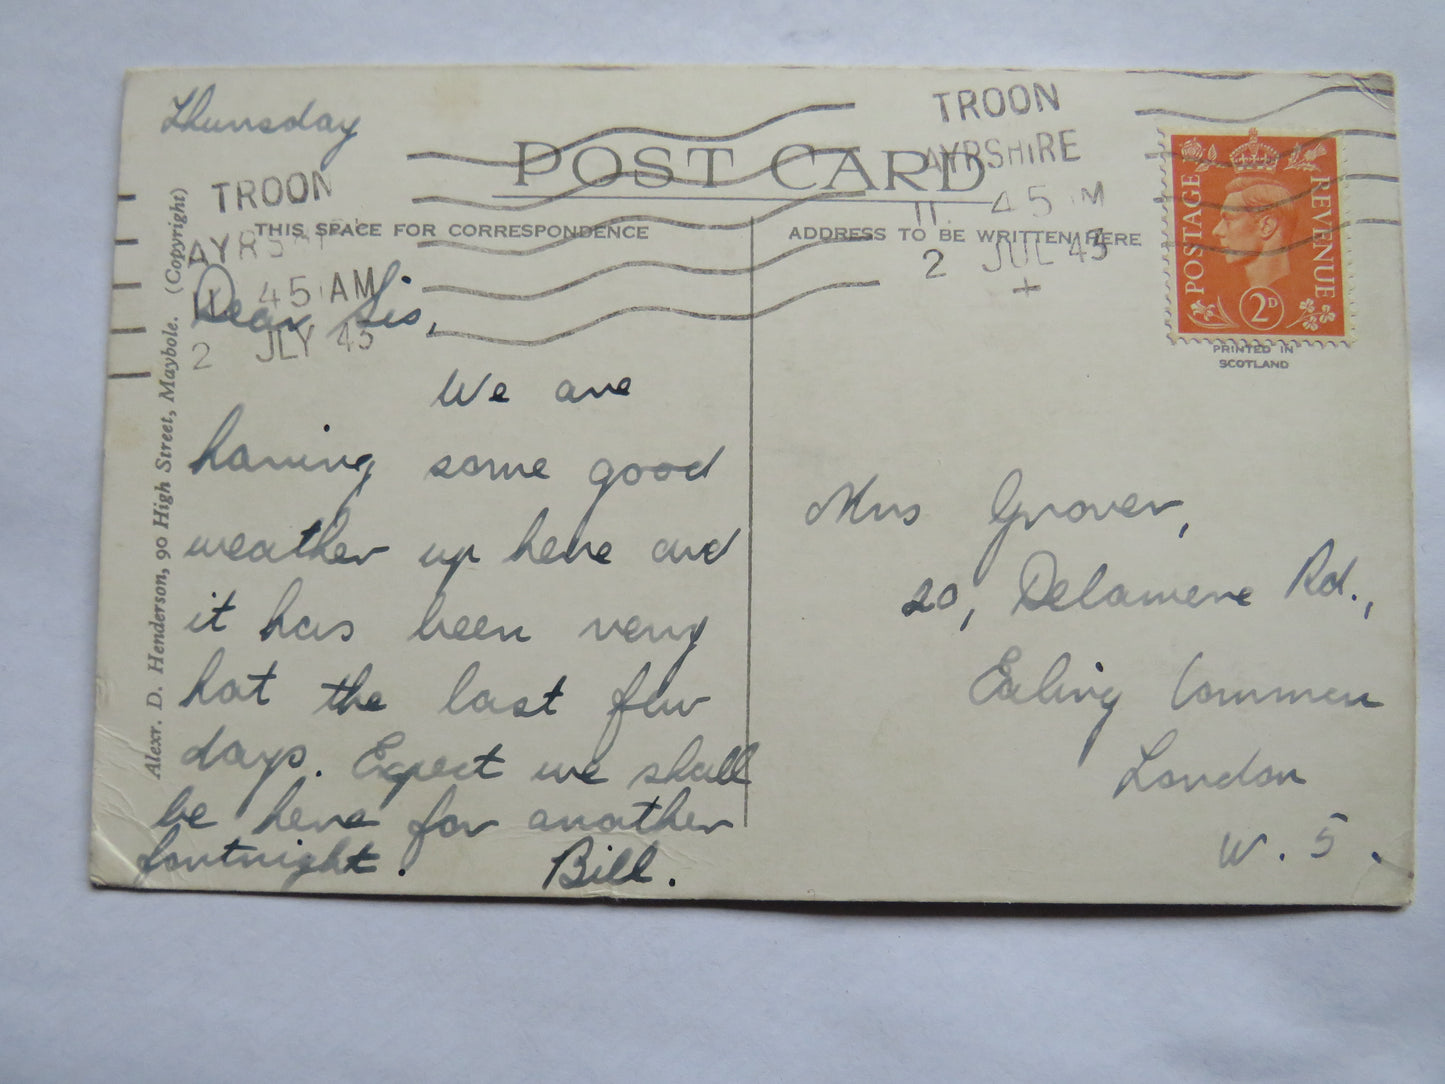 Thursday
TROON
AYRSHIRE
11. 45 AM
2 JUL 43
TROON
11 45 AM
2 JLY 43
POST CARD
THIS SPACE FOR CORRESPONDENCE
ADDRESS TO BE WRITTEN HERE
POSTAGE
REVENUE
2D
PRINTED IN
SCOTLAND
Alexr. D. Henderson, 90 High Street, Maybole. (Copyright)
Dear Sis,
We are
having some good
weather up here and
it has been very
hot the last few
days. Expect we shall
be here for another
fortnight. Bill.
Mrs Grover,
20, Delamere Rd.,
Ealing Common
London
W. 5.